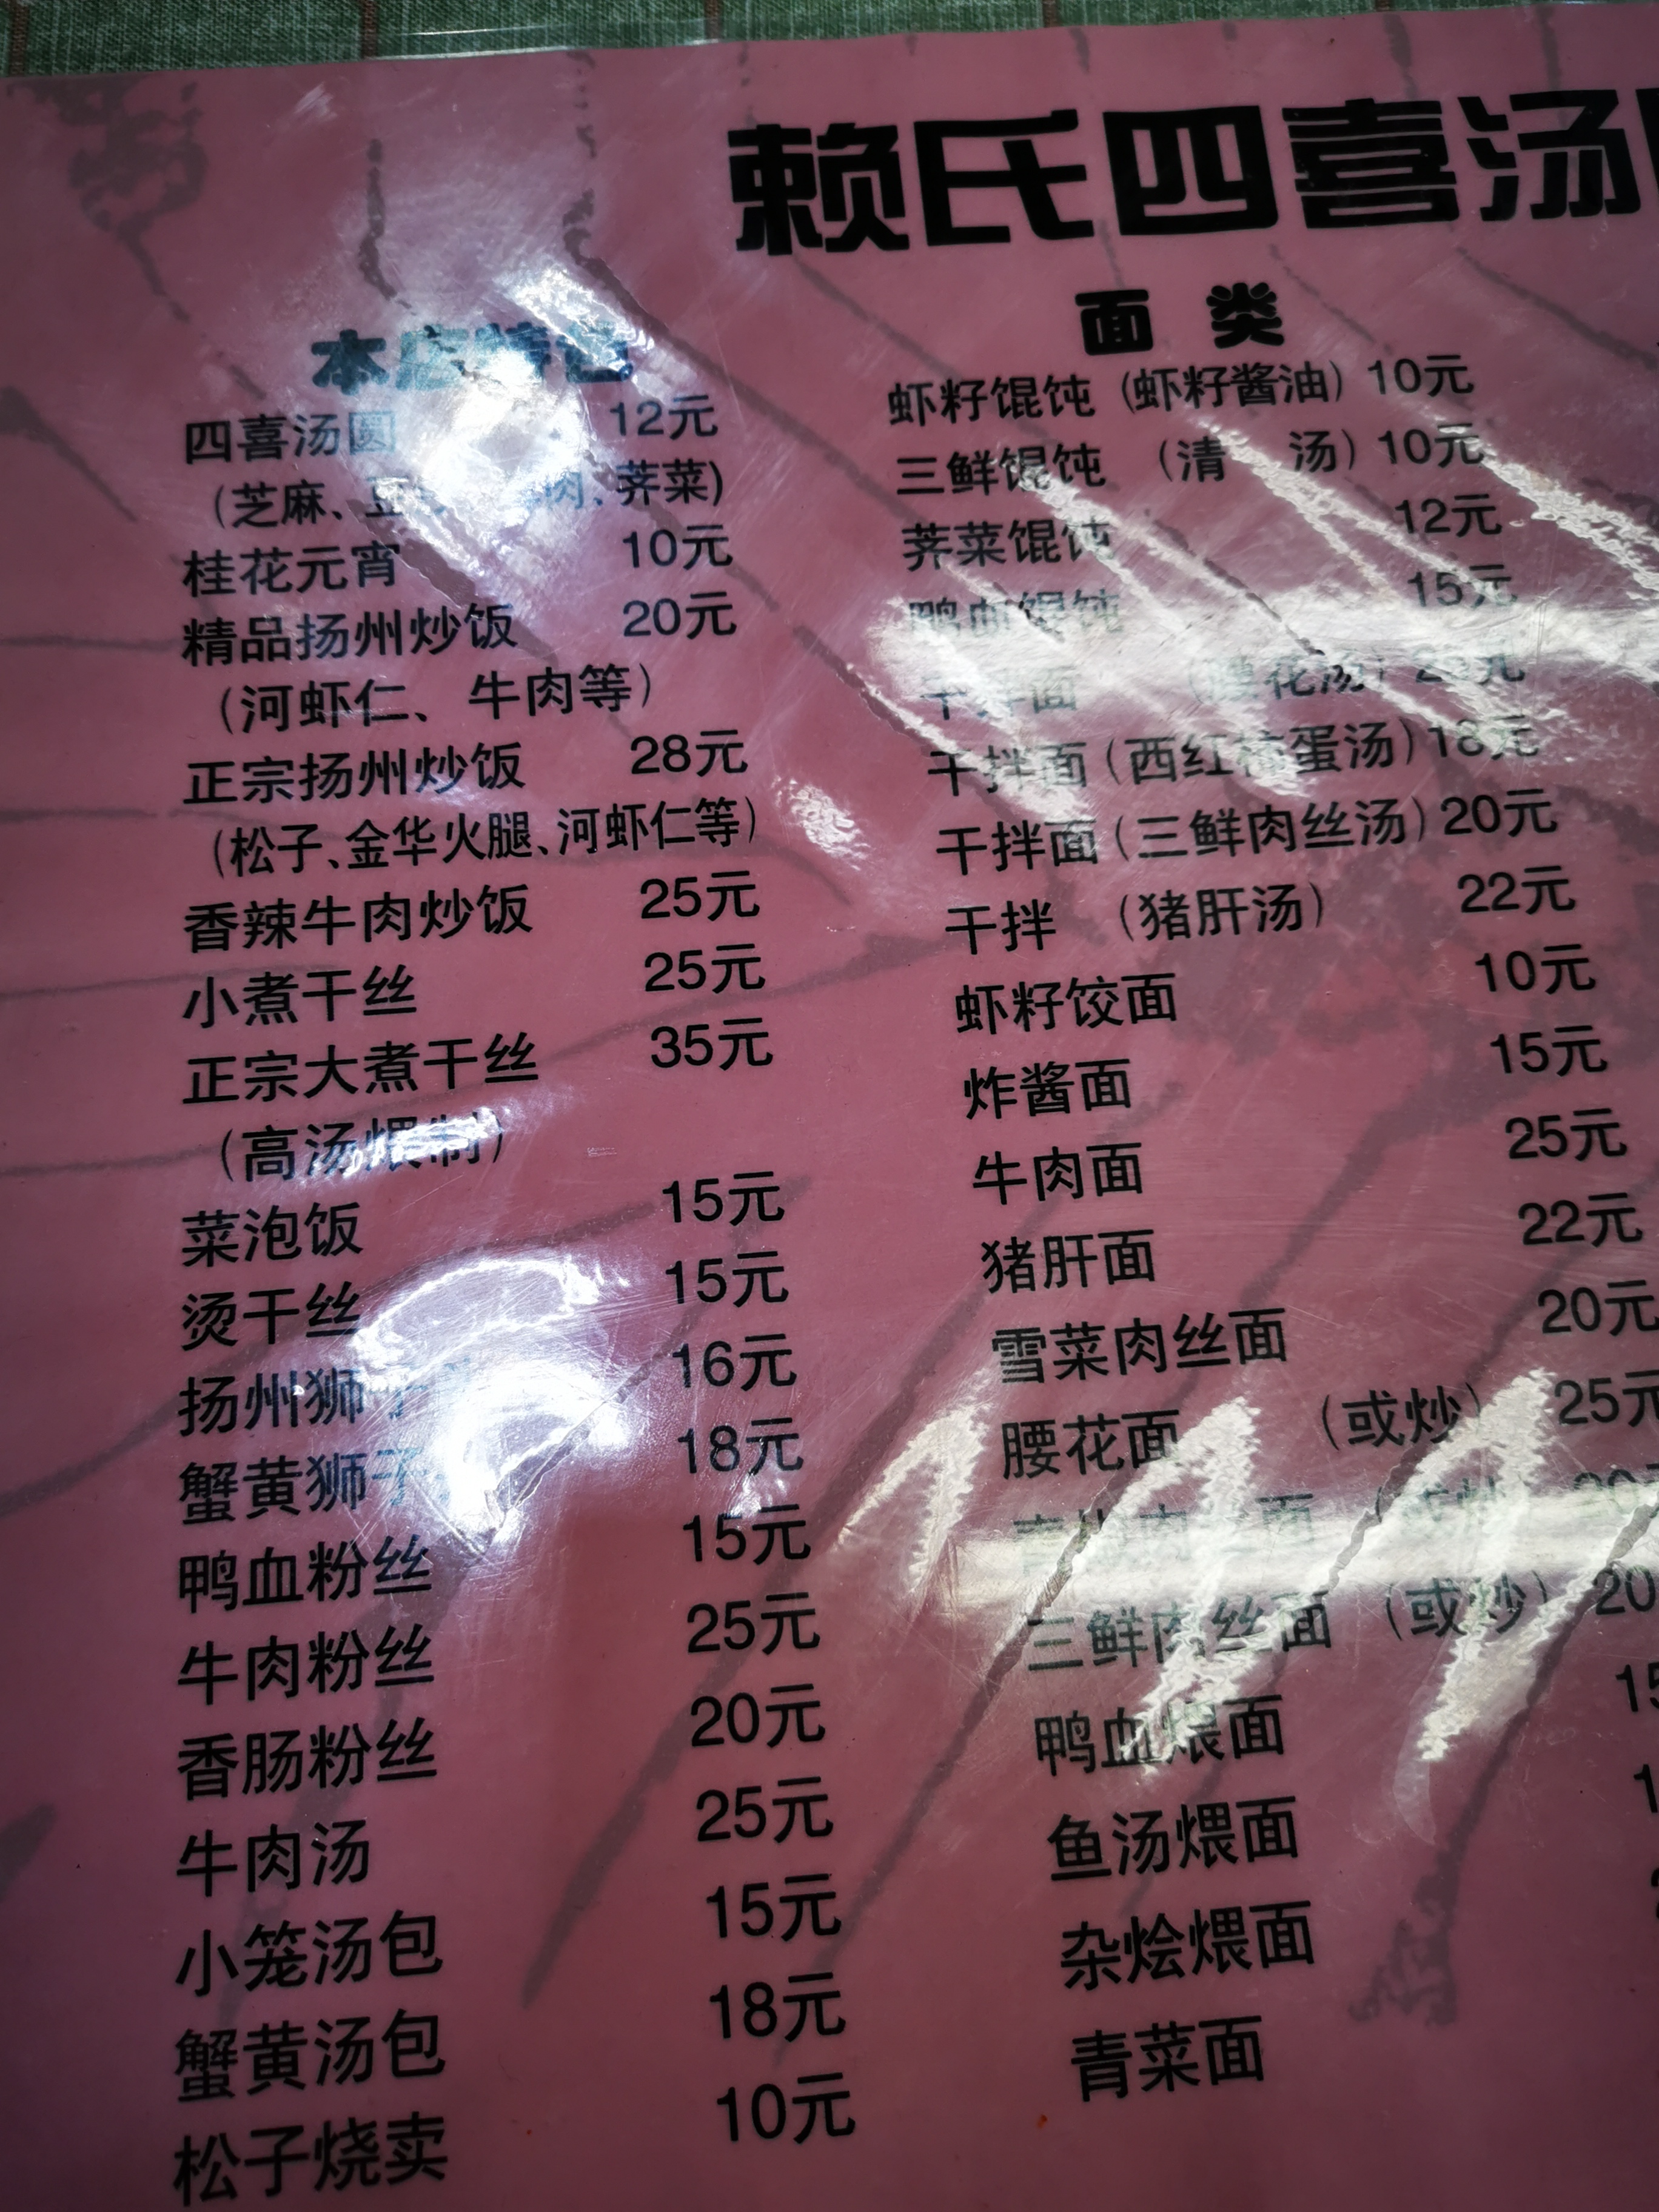 赖氏四喜汤
本店特色
四喜汤圆 12元
(芝麻、豆 肉、荠菜)
桂花元宵 10元
精品扬州炒饭 20元
(河虾仁、牛肉等)
正宗扬州炒饭 28元
(松子、金华火腿、河虾仁等)
香辣牛肉炒饭 25元
小煮干丝 25元
正宗大煮干丝 35元
(高汤煨制)
菜泡饭 15元
烫干丝 15元
扬州狮子 16元
蟹黄狮子 18元
鸭血粉丝 15元
牛肉粉丝 25元
香肠粉丝 20元
牛肉汤 25元
小笼汤包 15元
蟹黄汤包 18元
松子烧卖 10元
面类
虾籽馄饨(虾籽酱油) 10元
三鲜馄饨 (清 汤) 10元
荠菜馄饨 12元
鸭血馄饨 15元
干拌面 (腰花汤) 元
干拌面(西红柿蛋汤) 18元
干拌面(三鲜肉丝汤) 20元
干拌 (猪肝汤) 22元
虾籽饺面 10元
炸酱面 15元
牛肉面 25元
猪肝面 22元
雪菜肉丝面 20元
腰花面 (或炒) 25元
肉丝面 (或炒) 20
三鲜肉丝面 (或炒) 20
鸭血煨面 15
鱼汤煨面
杂烩煨面
青菜面